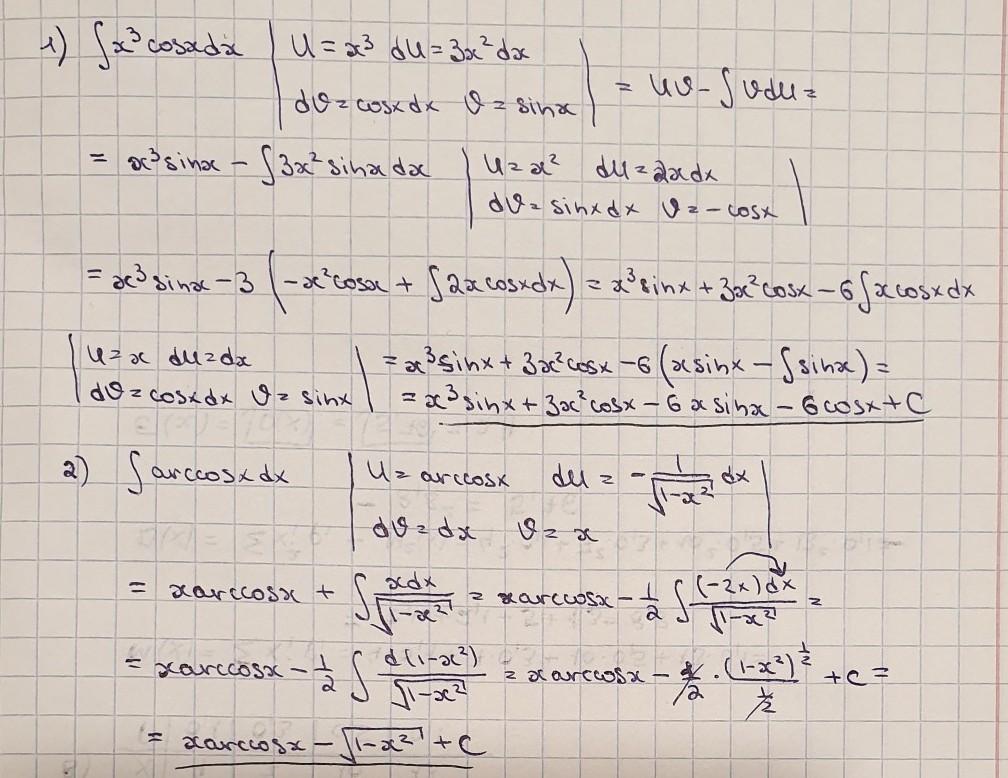 1) ∫x³cosxdx | U = x³ dU = 3x²dx
dϑ = cosxdx ϑ = sinx | = Uϑ - ∫ϑdU =
= x³sinx - ∫3x²sinxdx | U = x² dU = 2xdx
dϑ = sinxdx ϑ = -cosx |
= x³sinx - 3(-x²cosx + ∫2xcosxdx) = x³sinx + 3x²cosx - 6∫xcosxdx
| U = x dU = dx | = x³sinx + 3x²cosx - 6(xsinx - ∫sinx) =
| dϑ = cosxdx ϑ = sinx | = x³sinx + 3x²cosx - 6xsinx - 6cosx + C
2) ∫arccosxdx | U = arccosx dU = -1/√(1-x²) dx |
dϑ = dx ϑ = x
= xarccosx + ∫xdx/√(1-x²) = xarccosx - 1/2 ∫(-2x)dx/√(1-x²) =
= xarccosx - 1/2 ∫d(1-x²)/√(1-x²) = xarccosx - 1/2 · (1-x²)^(1/2)/(1/2) + C =
= xarccosx - √(1-x²) + C